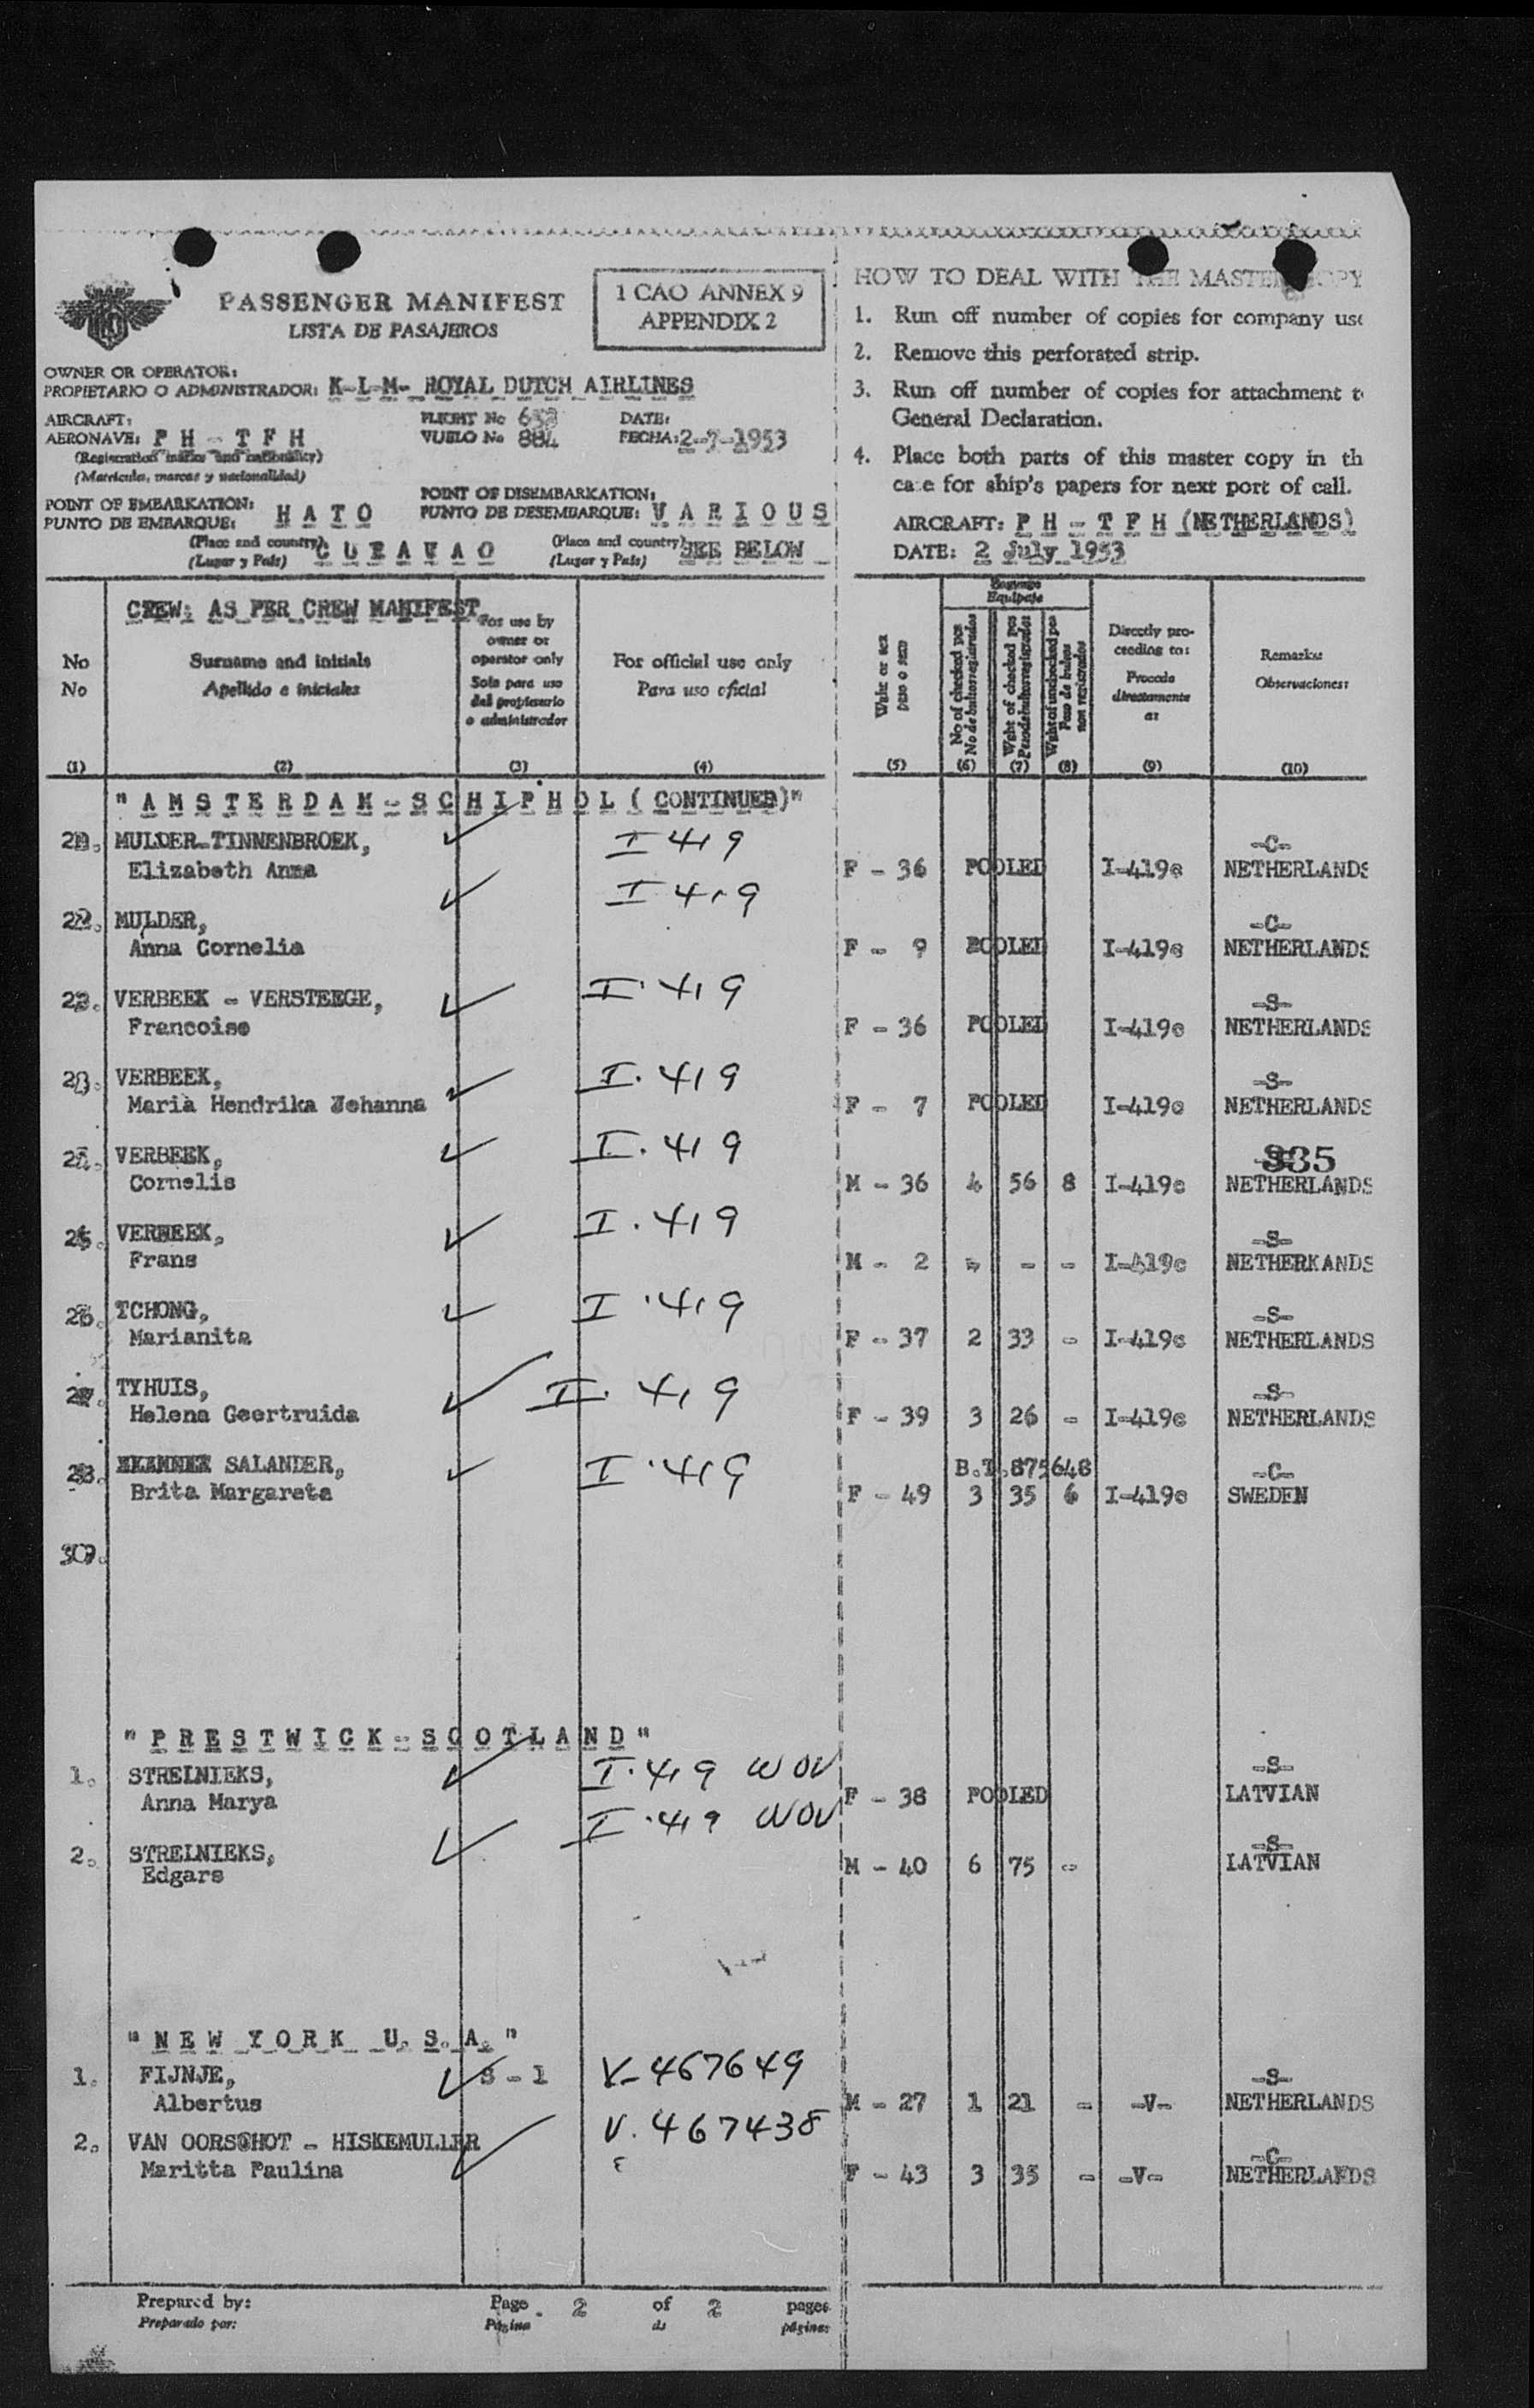 PASSENGER MANIFEST
LISTA DE PASAJEROS
1 CAO ANNEX 9
APPENDIX 2
OWNER OR OPERATOR:
PROPIETARIO O ADMINISTRADOR: K-L-M- ROYAL DUTCH AIRLINES
AIRCRAFT: FLIGHT No DATE:
AERONAVE: P H - T F H VUELO No 884 FECHA: 2-7-1953
(Registration marks and nationality)
(Matricula, marcas y nacionalidad)
POINT OF EMBARKATION: POINT OF DISEMBARKATION:
PUNTO DE EMBARQUE: H A T O PUNTO DE DESEMBARQUE: V A R I O U S
(Place and country) (Place and country)
(Lugar y Pais) C U R A C A O (Lugar y Pais) SEE BELOW
HOW TO DEAL WITH THE MASTER COPY
1. Run off number of copies for company use
2. Remove this perforated strip.
3. Run off number of copies for attachment t
General Declaration.
4. Place both parts of this master copy in th
case for ship's papers for next port of call.
AIRCRAFT: P H - T F H (NETHERLANDS)
DATE: 2 July 1953
CREW: AS PER CREW MANIFEST
No
No
Surname and initials
Apellido e iniciales
For use by
owner or
operator only
Solo para uso
del propietario
o administrador
For official use only
Para uso oficial
Wght or sex
peso o sexo
Baggage
Equipaje
No of checked pcs
No de bultos registrados
Wght of checked pcs
Peso de bultos registrados
Wght of unchecked pcs
Peso de bultos
non registrados
Directly pro-
ceeding to:
Procede
directamente
a:
Remarks:
Observaciones:
(1) (2) (3) (4) (5) (6) (7) (8) (9) (10)
"A M S T E R D A M - S C H I P H O L ( CONTINUED)"
MULDER-TINNENBROEK, I 419 -C-
Elizabeth Anna F - 36 POOLED I-419c NETHERLANDS
22. MULDER, I 419 -C-
Anna Cornelia F - 9 POOLED I-419c NETHERLANDS
VERBEEK - VERSTEEGE, I. 419 -S-
Francoise F - 36 POOLED I-419c NETHERLANDS
VERBEEK, I. 419 -S-
Maria Hendrika Johanna F - 7 POOLED I-419c NETHERLANDS
VERBEEK, I. 419 335
Cornelis M - 36 4 56 8 I-419c NETHERLANDS
VERBEEK, I. 419 -S-
Frans M - 2 - - - I-419c NETHERKANDS
TCHONG, I. 419 -S-
Marianita F - 37 2 33 - I-419c NETHERLANDS
TYHUIS, I. 419 -S-
Helena Geertruida F - 39 3 26 - I-419c NETHERLANDS
SALANDER, I. 419 B.T.875648 -C-
Brita Margareta F - 49 3 35 6 I-419c SWEDEN
"P R E S T W I C K - S C O T L A N D"
1. STRELNIEKS, I. 419 WOV -S-
Anna Marya F - 38 POOLED LATVIAN
2. STRELNIEKS, I. 419 WOV -S-
Edgars M - 40 6 75 - LATVIAN
"N E W Y O R K U. S. A."
1. FIJNJE, S - 1 V-467649 -S-
Albertus M - 27 1 21 - -V- NETHERLANDS
2. VAN OORSCHOT - HISKEMULLER V. 467438 -C-
Maritta Paulina F - 43 3 35 - -V- NETHERLANDS
Prepared by: Page 2 of 2 pages
Preparado por: Página de páginas